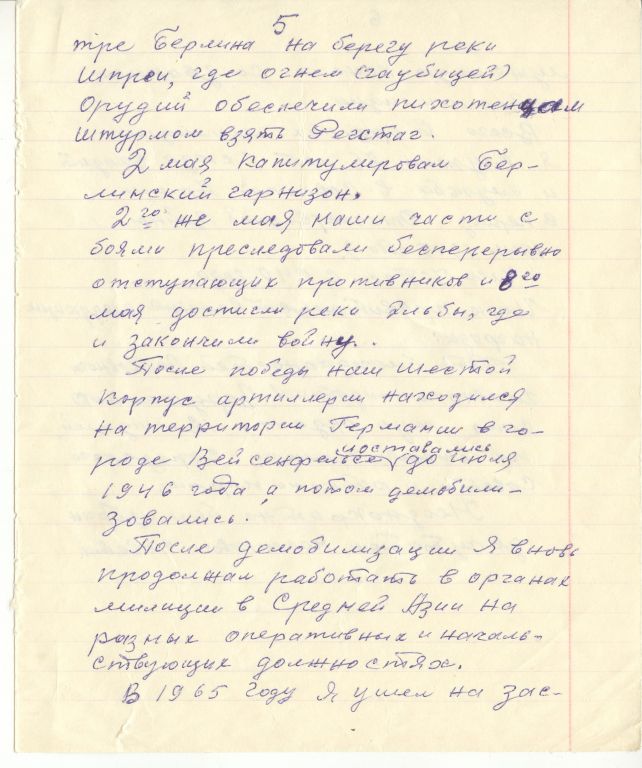 5
тре Берлина на берегу реки
Шпреи, где огнем (гаубицей)
Орудий обеспечили пихотенцам
штурмом взять Регстаг.
2 мая капитулировал Бер-
линский гарнизон.
2го же мая наши части с
боями преследовали бесперерывно
отступающих противников и 8го
мая достигли реки Эльбы, где
и закончили войну.
После победы наш шестой
корпус артиллерии находился
на территории Германии в го-
роде Вейсенфельсе
и оставались
до июля
1946 года, а потом демобили-
зовались.
После демобилизации Я вновь
продолжал работать в органах
милиции в Средней Азии на
разных оперативных и началь-
ствующих должностях.
В 1965 году Я ушел на зас-